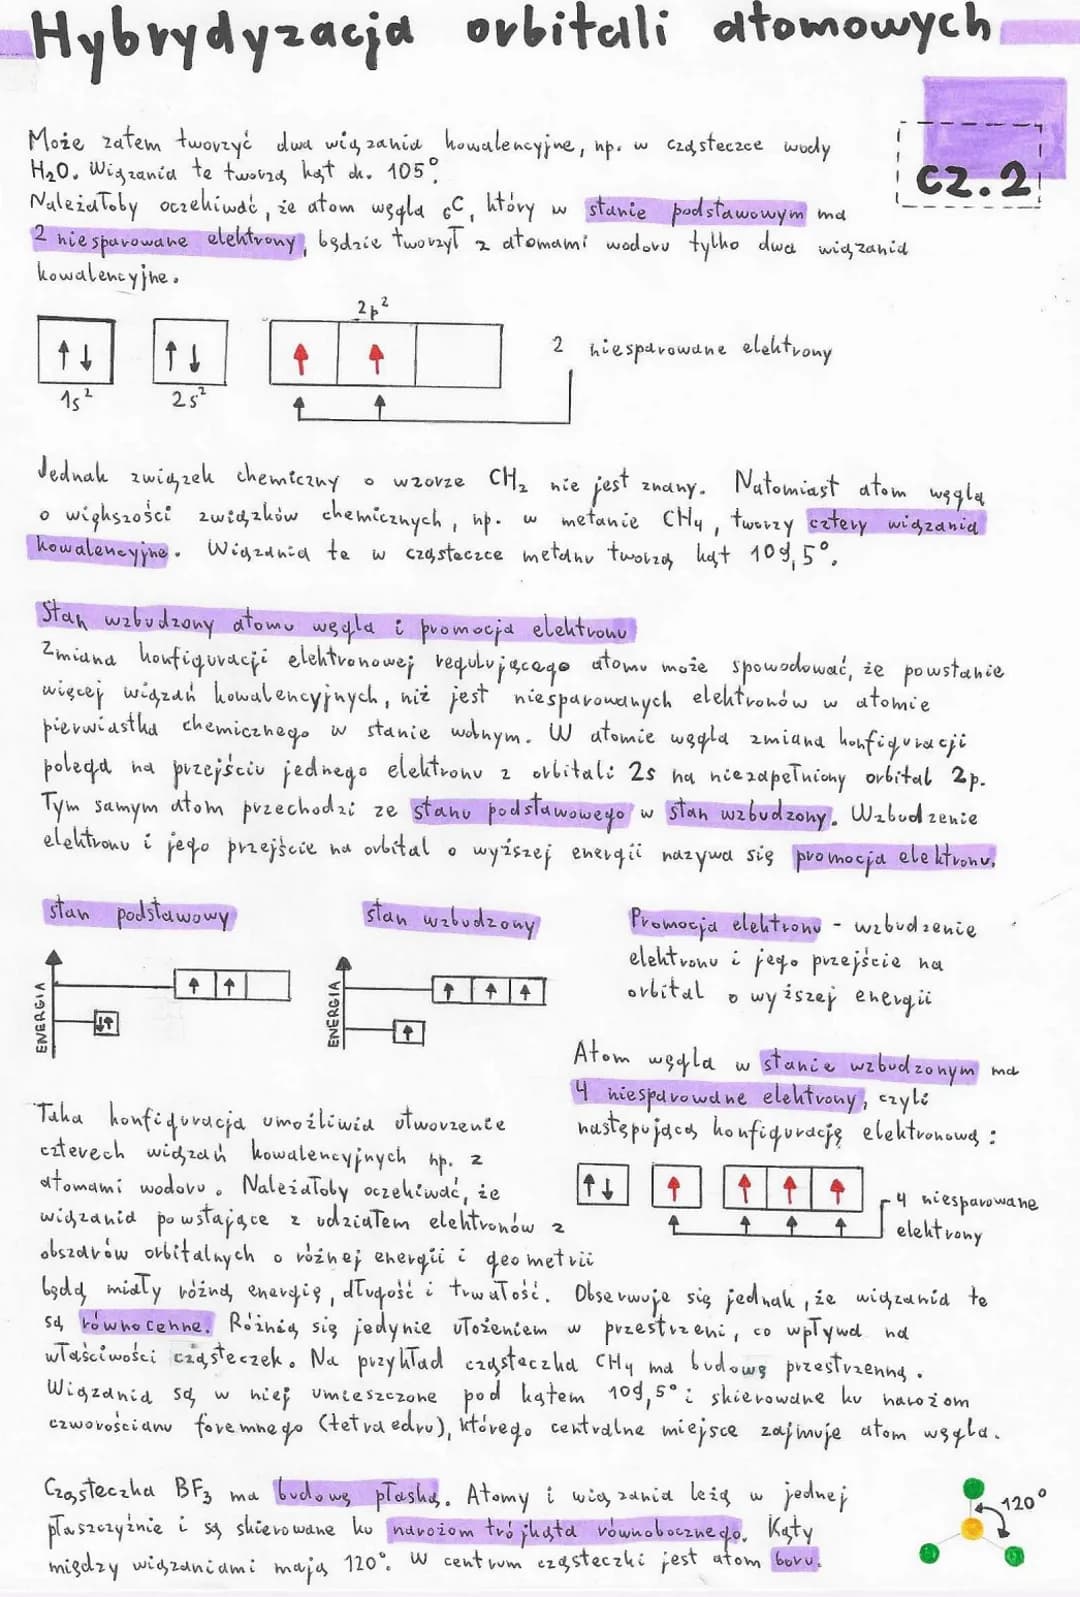 Hybrydyzacja orbitali atomowych
cz.2
Może zatem tworzyć dwa wiązania kowalencyjne, np. w cząsteczce wody
H₂O. Wiązania te tworzą kąt ok. 105°.
Należałoby oczekiwać, że atom węgla ₆C, który w stanie podstawowym ma
2 niesparowane elektrony, będzie tworzył z atomami wodoru tylko dwa wiązania
kowalencyjne.
2p²
1s²
2s²
2 niesparowane elektrony
Jednak związek chemiczny o wzorze CH₂ nie jest znany. Natomiast atom węgla
o większości związków chemicznych, np. w metanie CH₄, tworzy cztery wiązania
kowalencyjne. Wiązania te w cząsteczce metanu tworzą kąt 109,5°.
Stan wzbudzony atomu węgla i promocja elektronu
Zmiana konfiguracji elektronowej regulującego atomu może spowodować, że powstanie
więcej wiązań kowalencyjnych, niż jest niesparowanych elektronów w atomie
pierwiastka chemicznego w stanie wolnym. W atomie węgla zmiana konfiguracji
polega na przejściu jednego elektronu z orbitali 2s na niezapełniony orbital 2p.
Tym samym atom przechodzi ze stanu podstawowego w stan wzbudzony. Wzbudzenie
elektronu i jego przejście na orbital o wyższej energii nazywa się promocja elektronu.
stan podstawowy
stan wzbudzony
ENERGIA
ENERGIA
Promocja elektronu - wzbudzenie
elektronu i jego przejście na
orbital o wyższej energii
Atom węgla w stanie wzbudzonym ma
4 niesparowane elektrony, czyli
następującą konfigurację elektronową:
4 niesparowane
elektrony
Taka konfiguracja umożliwia utworzenie
czterech wiązań kowalencyjnych np. z
atomami wodoru. Należałoby oczekiwać, że
wiązania powstające z udziałem elektronów z
obszarów orbitalnych o różnej energii i geometrii
będą miały różną energię, długość i trwałość. Obserwuje się jednak, że wiązania te
są równocenne. Różnią się jedynie ułożeniem w przestrzeni, co wpływa na
właściwości cząsteczek. Na przykład cząsteczka CH₄ ma budowę przestrzenną.
Wiązania są w niej umieszczone pod kątem 109,5° i skierowane ku narożom
czworościanu foremnego (tetraedru), którego centralne miejsce zajmuje atom węgla.
Cząsteczka BF₃ ma budowę płaską. Atomy i wiązania leżą w jednej
płaszczyźnie i są skierowane ku narożom trójkąta równobocznego. Kąty
między wiązaniami mają 120°. W centrum cząsteczki jest atom boru.
120°